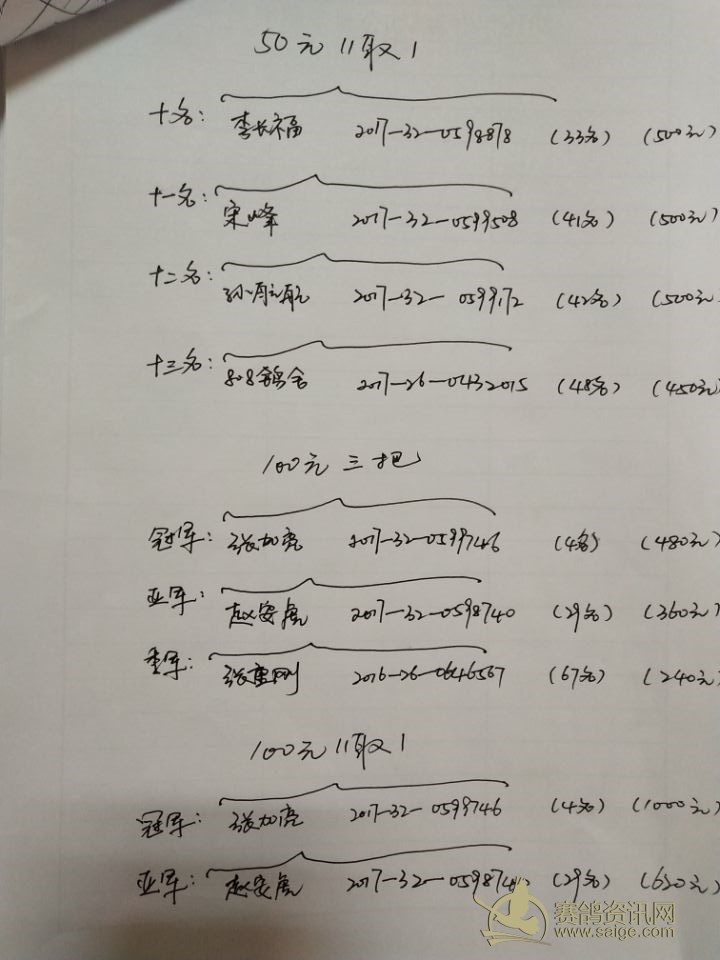 50元11取1
十名: 李长福 2017-32-0598878 (33名) (500元)
十一名: 宋峰 2017-32-0599508 (41名) (500元)
十二名: 2017-32-0599172 (42名) (500元
十三名: 808鸽舍 2017-26-0432015 (48名) (450元
100元三把
冠军: 张加亮 2017-32-0599746 (4名) (480元)
亚军: 赵安虎 2017-32-0598740 (29名) (360元)
季军: 张重刚 2016-26-0646567 (67名) (240元)
100元11取1
冠军: 张加亮 2017-32-0599746 (4名) (1000元)
亚军: 赵安虎 2017-32-059874 (29名) (620元)
赛鸽资讯网
www.saige.com